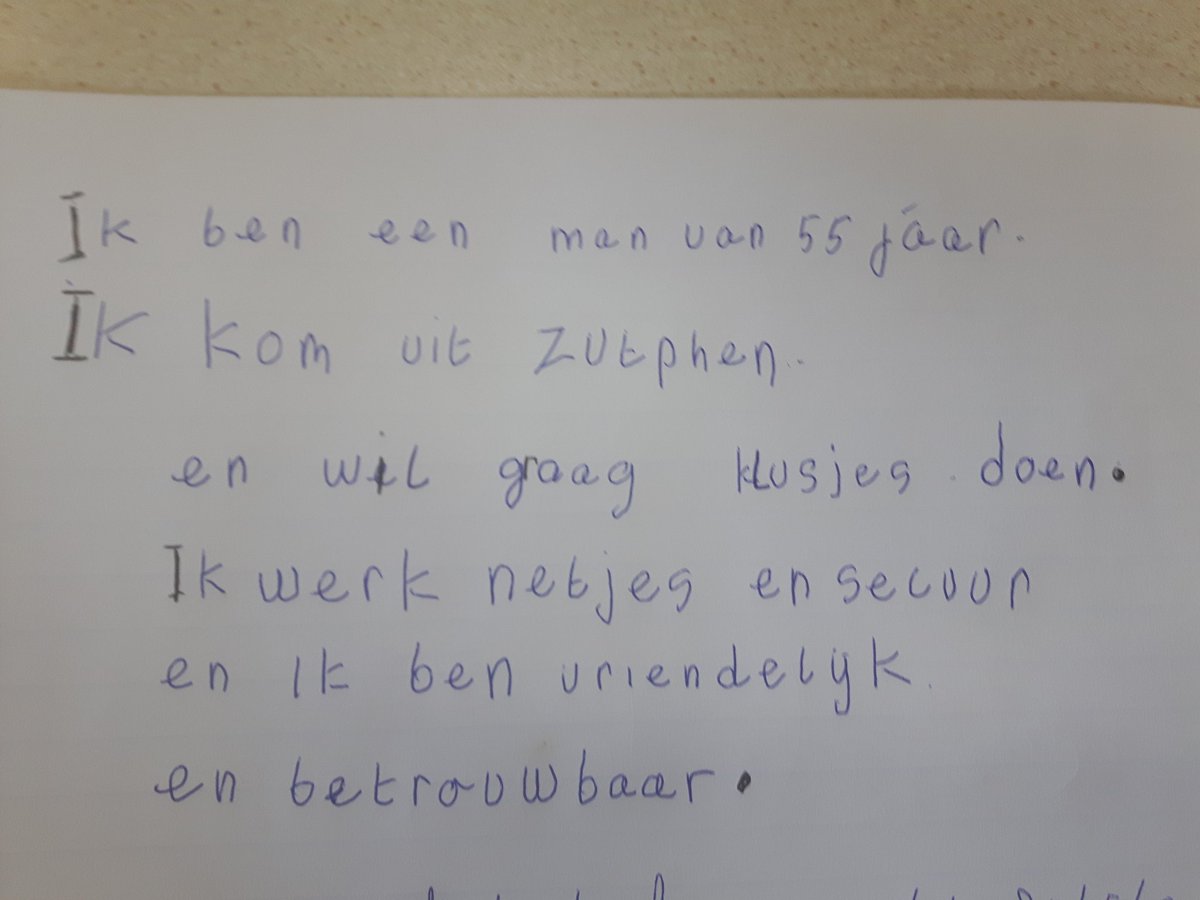 Ik ben een man van 55 jaar.
Ik kom uit Zutphen.
en wil graag klusjes doen.
Ik werk netjes en secuur
en ik ben vriendelijk.
en betrouwbaar.